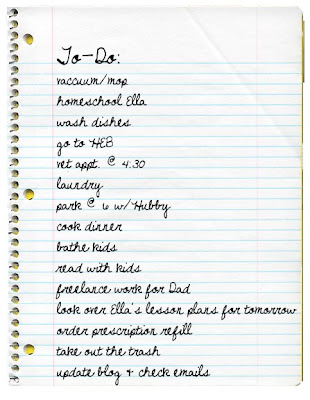 To-Do:
vaccuum/mop
homeschool Ella
wash dishes
go to HEB
vet appt. @ 4:30
laundry
park @ 6 w/ Hubby
cook dinner
bathe kids
read with kids
freelance work for Dad
look over Ella's lesson plans for tomorrow
order prescription refill
take out the trash
update blog + check emails